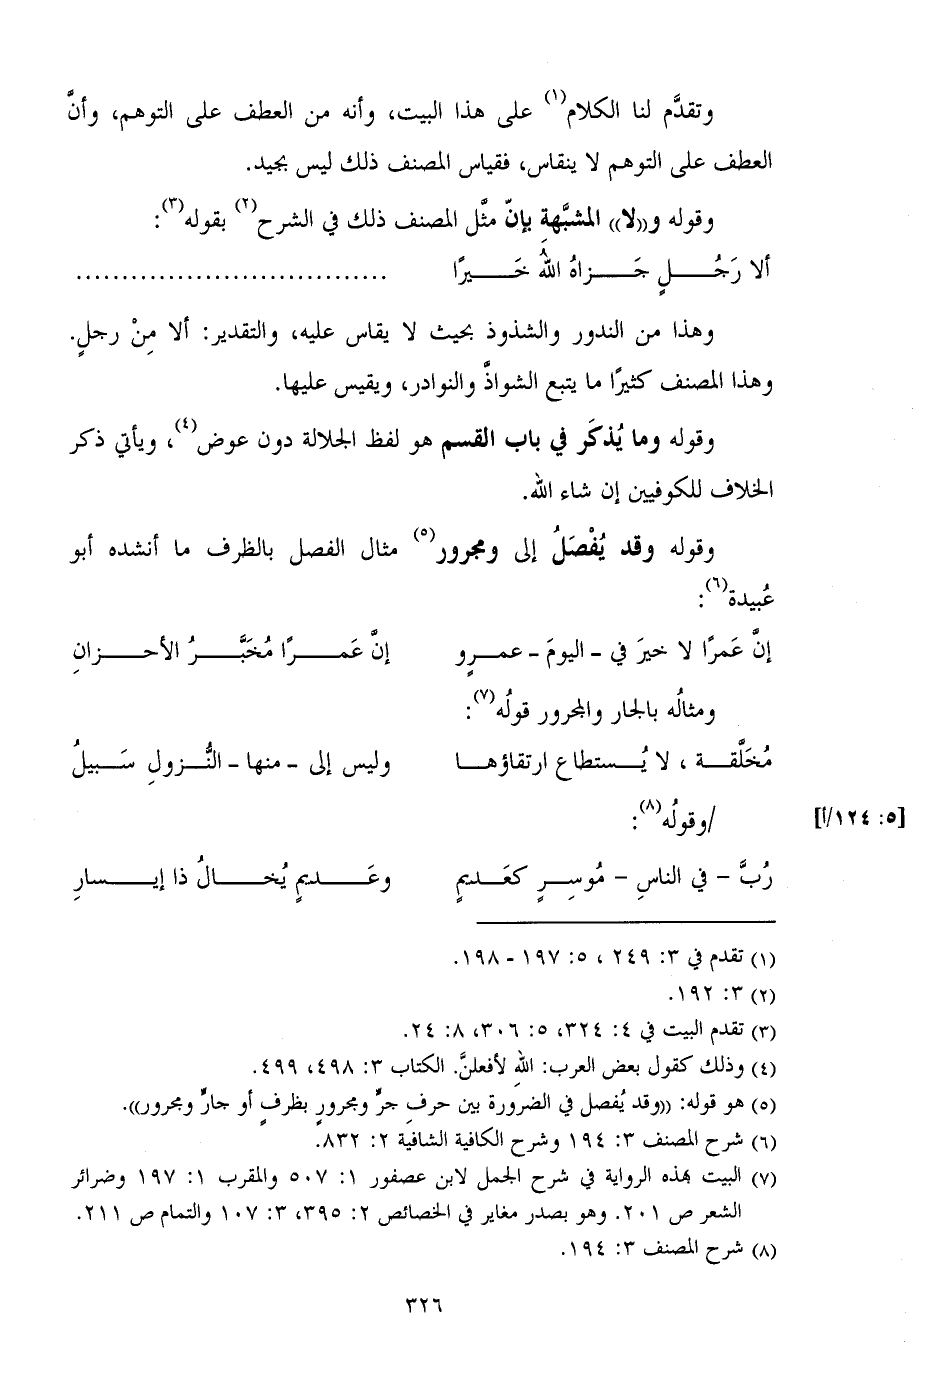 وتقدَّم لنا الكلام(١) على هذا البيت، وأنه من العطف على التوهم، وأنَّ
العطف على التوهم لا ينقاس، فقياس المصنف ذلك ليس بجيد.
وقوله و((لا)) المشبَّهة بإنّ مثَّل المصنف ذلك في الشرح(٢) بقوله(٣):
ألا رَجُـــلٍ جَـــزاهُ اللهُ خَـــيرًا ................................
وهذا من الندور والشذوذ بحيث لا يقاس عليه، والتقدير: ألا مِنْ رجلٍ.
وهذا المصنف كثيرًا ما يتبع الشواذَّ والنوادر، ويقيس عليها.
وقوله وما يُذكَر في باب القسم هو لفظ الجلالة دون عوض(٤)، ويأتي ذكر
الخلاف للكوفيين إن شاء الله.
وقوله وقد يُفْصَلُ إلى ومجرور(٥) مثال الفصل بالظرف ما أنشده أبو
عُبيدة(٦):
إنَّ عَمرًا لا خيرَ في - اليومَ - عمـرو إنَّ عَمـــرًا مُخَبَّـــرُ الأحـــزانِ
ومثالُه بالجار والمجرور قولُه(٧):
مُخَلَّقـــة ، لا يُـــستطاع ارتقاؤهـــا وليس إلى - منها - النُّزولِ سَـبيلُ
[٥: ١٢٤/أ] /وقولُه(٨):
رُبَّ - في الناسِ - مُوسِـرٍ كعَـديمٍ وعَـــديمٍ يُخـــالُ ذا إيـــسارِ
(١) تقدم في ٣: ٢٤٩ ، ٥: ١٩٧ - ١٩٨.
(٢) ٣: ١٩٢.
(٣) تقدم البيت في ٤: ٣٢٤، ٥: ٣٠٦، ٨: ٢٤.
(٤) وذلك كقول بعض العرب: اللهِ لأفعلنَّ. الكتاب ٣: ٤٩٨، ٤٩٩.
(٥) هو قوله: ((وقد يُفصل في الضرورة بين حرفِ جرٍّ ومجرورٍ بظرفٍ أو جارٍّ ومجرور)).
(٦) شرح المصنف ٣: ١٩٤ وشرح الكافية الشافية ٢: ٨٣٢.
(٧) البيت بهذه الرواية في شرح الجمل لابن عصفور ١: ٥٠٧ والمقرب ١: ١٩٧ وضرائر
الشعر ص ٢٠١. وهو بصدر مغاير في الخصائص ٢: ٣٩٥، ٣: ١٠٧ والتمام ص ٢١١.
(٨) شرح المصنف ٣: ١٩٤.
٣٢٦